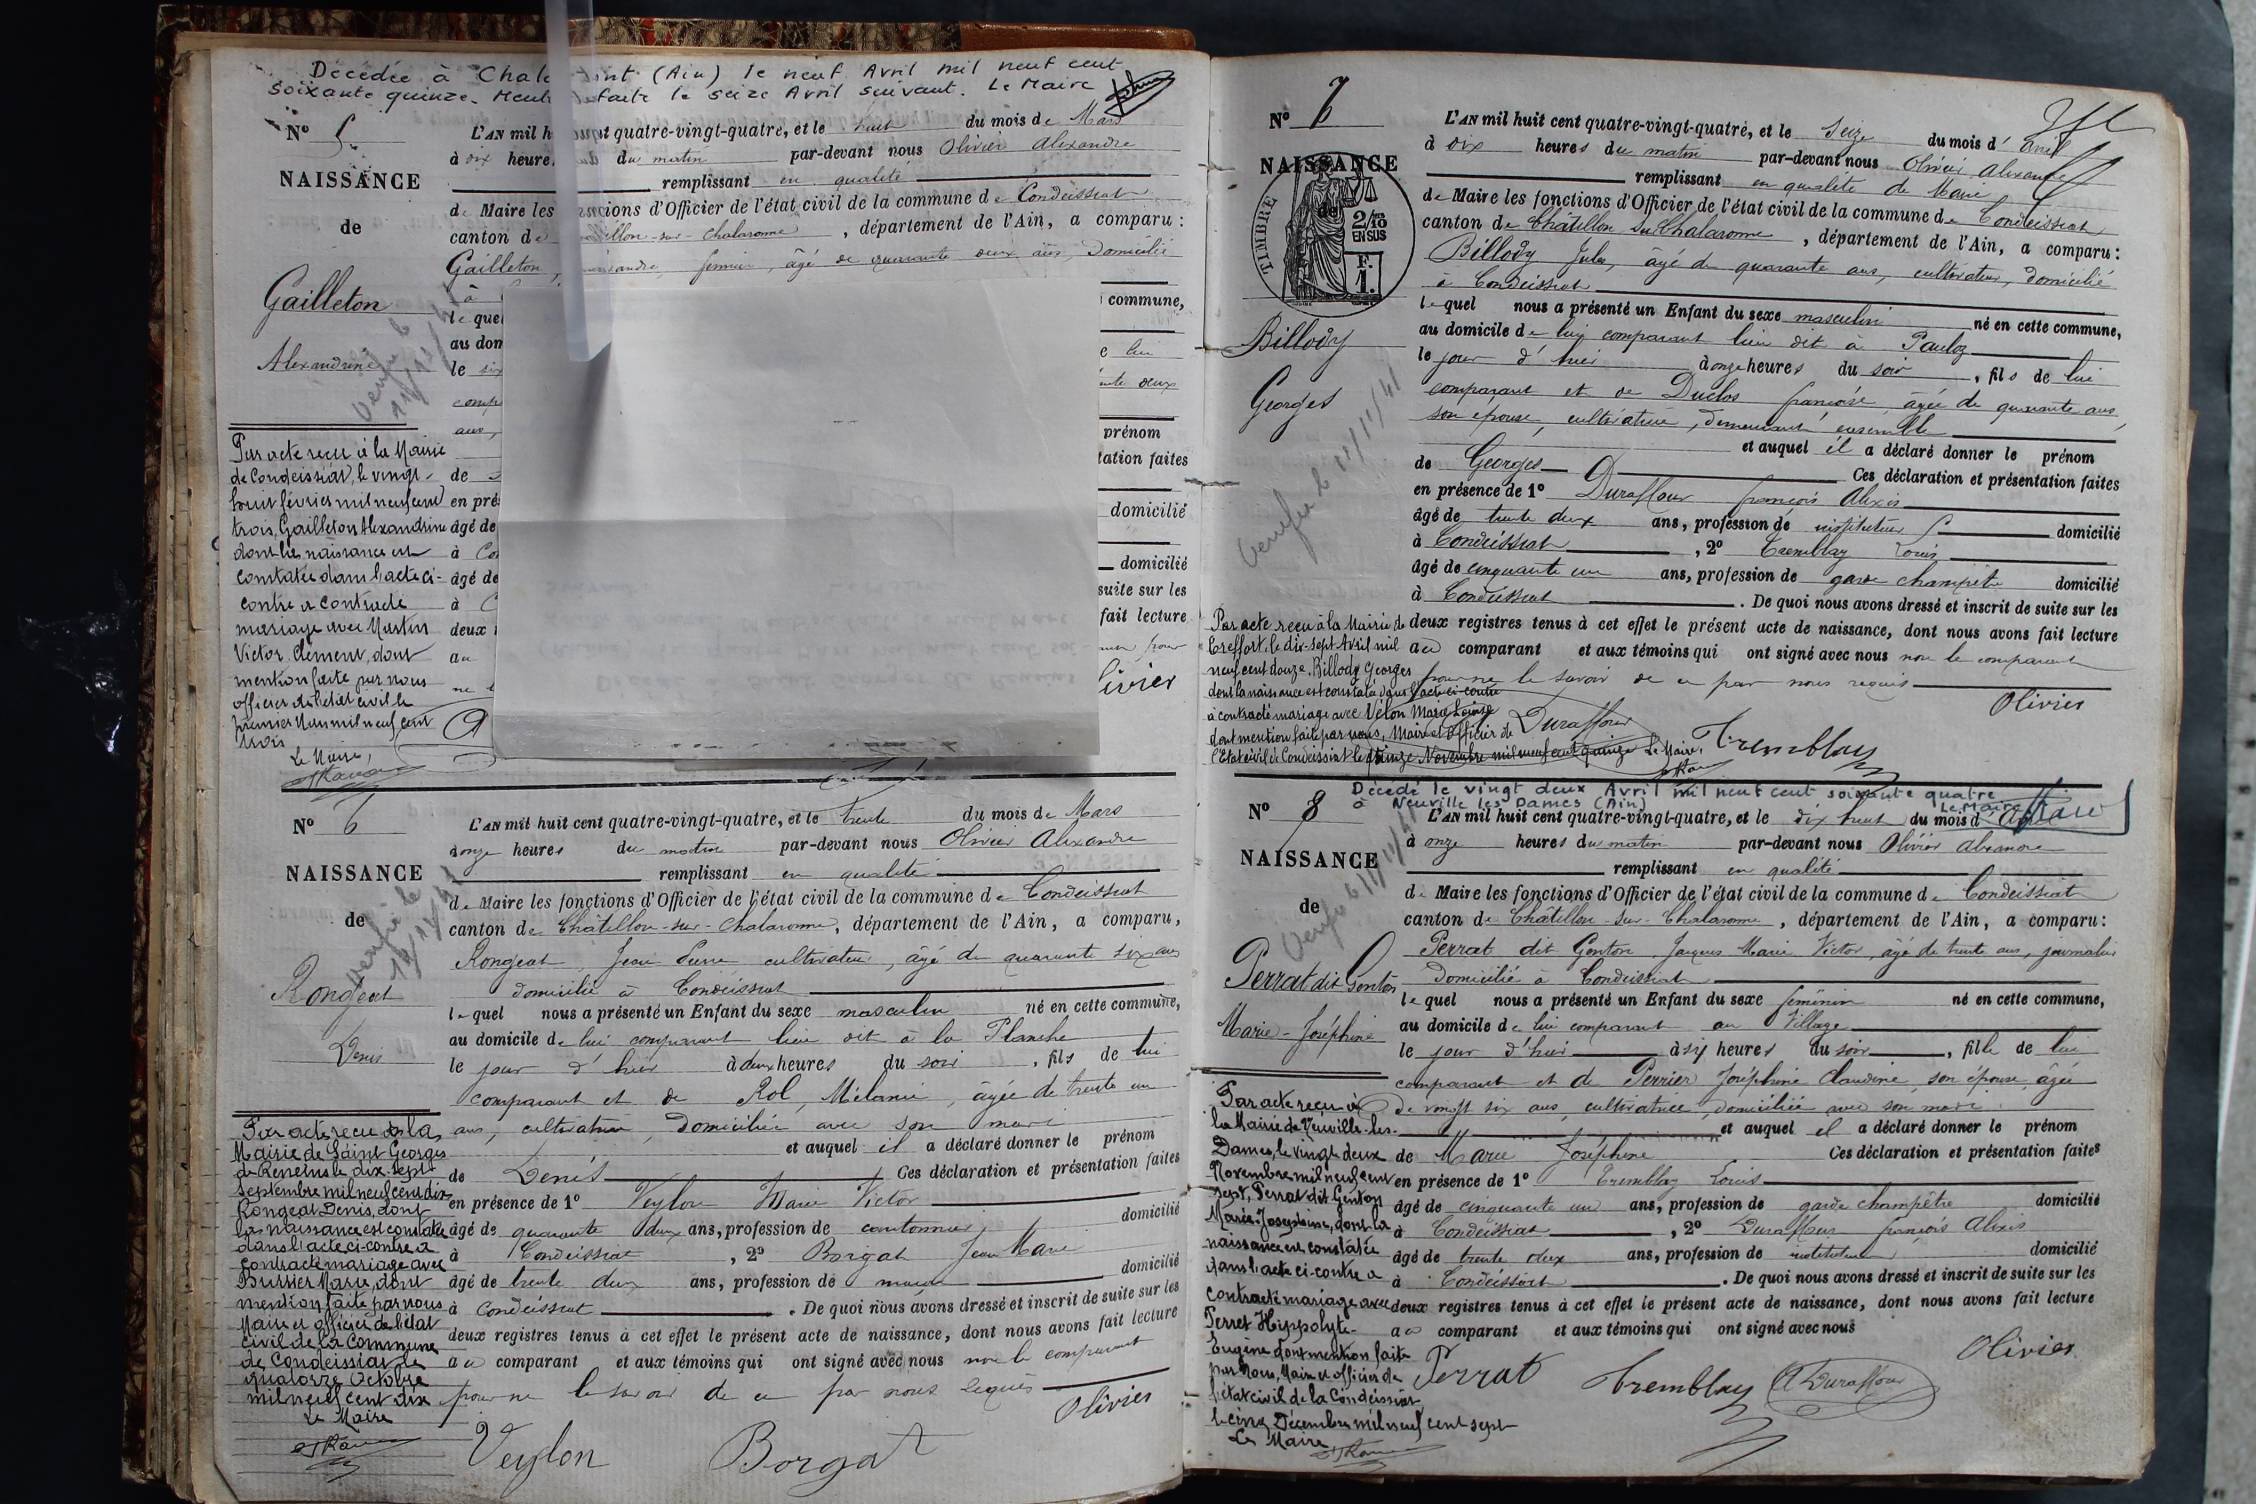 Décédée à Chala (Ain) le neuf Avril mil neuf cent
soixante quinze. faite le seize Avril suivant. Le Maire
N° 5
NAISSANCE
de
Gailleton
Alexandrine
L'AN mil h quatre-vingt-quatre, et le huit du mois de Mars
à dix heure du matin par-devant nous Olivier Alexandre
remplissant en qualité
de Maire les fonctions d'Officier de l'état civil de la commune de Condeissiat
canton de Châtillon-sur-Chalaronne, département de l'Ain, a comparu :
Gailleton, fermier, âgé de quarante deux ans, Domicilié
à
commune,
le quel
au dom
le six
lui
comp
deux
ans,
prénom
de
tation faites
en pré
âgé de
domicilié
à Co
âgé de
domicilié
à C
suite sur les
deux
fait lecture
au
pour
ne
Par acte reçu à la Mairie
de Condeissiat, le vingt-
huit février mil neuf cent
trois, Gailleton Alexandrine
dont la naissance est
constatée dans l'acte ci-
contre a contracté
mariage avec Martin
Victor Clément, dont
mention faite par nous
officier de l'état civil le
premier Mars mil neuf cent
trois
Le Maire,
N° 6
NAISSANCE
de
Rongeat
Denis
L'AN mil huit cent quatre-vingt-quatre, et le trente du mois de Mars
à onze heures du matin par-devant nous Olivier Alexandre
remplissant en qualité
de Maire les fonctions d'Officier de l'état civil de la commune de Condeissiat
canton de Châtillon-sur-Chalaronne, département de l'Ain, a comparu,
Rongeat, Jean Pierre cultivateur, âgé de quarante six ans
domicilié à Condeissiat
le quel nous a présenté un Enfant du sexe masculin né en cette commune,
au domicile de lui comparant lieu dit à la Planche
le jour d'hier à deux heures du soir, fils de lui
comparant et de Rol, Mélanie, âgée de trente un
ans, cultivatrice, Domiciliée avec son mari
et auquel il a déclaré donner le prénom
de Denis Ces déclaration et présentation faites
en présence de 1° Veylon Marie Victor
âgé de quarante deux ans, profession de cantonnier domicilié
à Condeissiat, 2° Borgat Jean Marie
âgé de trente deux ans, profession de maçon domicilié
à Condeissiat. De quoi nous avons dressé et inscrit de suite sur les
deux registres tenus à cet effet le présent acte de naissance, dont nous avons fait lecture
au comparant et aux témoins qui ont signé avec nous non le comparant
pour ne le savoir de ce par nous requis
Olivier
Veylon Borgat
Par acte reçu à la
Mairie de Saint Georges
de Reneins le dix-sept
Septembre mil neuf cent dix
Rongeat Denis, dont
la naissance est constatée
dans l'acte ci-contre a
contracté mariage avec
Bussier Marie, dont
mention faite par nous
Maire et officier de l'état
civil de la Commune
de Condeissiat le
quatorze Octobre
mil neuf cent dix
Le Maire
N° 7
NAISSANCE
de
TIMBRE
2/10 EN SUS
F. 1.
Billody
Georges
Vérifié le 11/11/41
L'AN mil huit cent quatre-vingt-quatre, et le seize du mois d'avril
à dix heures du matin par-devant nous Olivier Alexandre
remplissant en qualité de Maire
de Maire les fonctions d'Officier de l'état civil de la commune de Condeissiat
canton de Châtillon sur Chalaronne, département de l'Ain, a comparu :
Billody Jules, âgé de quarante ans, cultivateur, domicilié
à Condeissiat
le quel nous a présenté un Enfant du sexe masculin né en cette commune,
au domicile de lui comparant lieu dit à Pauloz
le jour d'hier à onze heures du soir, fils de lui
comparant et de Duclos françoise, âgée de quarante ans,
son épouse, cultivatrice, demeurant ensemble
et auquel il a déclaré donner le prénom
de Georges Ces déclaration et présentation faites
en présence de 1° Duraffour françois Alexis
âgé de trente deux ans, profession de instituteur domicilié
à Condeissiat, 2° Tremblay Louis
âgé de cinquante un ans, profession de garde champêtre domicilié
à Condeissiat. De quoi nous avons dressé et inscrit de suite sur les
deux registres tenus à cet effet le présent acte de naissance, dont nous avons fait lecture
au comparant et aux témoins qui ont signé avec nous non le comparant
pour ne le savoir de ce par nous requis
Olivier
Duraffour Tremblay
Par acte reçu à la Mairie de
Treffort, le dix-sept Avril mil
neuf cent douze, Billody Georges
dont la naissance est constatée dans l'acte ci-contre
a contracté mariage avec Vélon Marie Louise
dont mention faite par nous, Maire et Officier de
l'Etat civil de Condeissiat le quinze Novembre mil neuf cent quinze Le Maire,
Décédé le vingt deux Avril mil neuf cent soixante quatre
à Neuville les Dames (Ain) Le Maire
N° 8
NAISSANCE
de
Perrat dit Gonton
Marie-Joséphine
L'AN mil huit cent quatre-vingt-quatre, et le dix huit du mois d'
à onze heures du matin par-devant nous Olivier Alexandre
remplissant en qualité
de Maire les fonctions d'Officier de l'état civil de la commune de Condeissiat
canton de Châtillon-sur-Chalaronne, département de l'Ain, a comparu :
Perrat dit Gonton Jacques Marie Victor, âgé de trente ans, journalier
Domicilié à Condeissiat
le quel nous a présenté un Enfant du sexe féminin né en cette commune,
au domicile de lui comparant au Village
le jour d'hier à six heures du soir, fille de lui
comparant et de Perrier Joséphine Claudine, son épouse, âgée
de vingt six ans, cultivatrice, domiciliée avec son mari
et auquel il a déclaré donner le prénom
de Marie Joséphine Ces déclaration et présentation faites
en présence de 1° Tremblay Louis
âgé de cinquante un ans, profession de garde champêtre domicilié
à Condeissiat, 2° Duraffour françois Alexis
âgé de trente deux ans, profession de instituteur domicilié
à Condeissiat. De quoi nous avons dressé et inscrit de suite sur les
deux registres tenus à cet effet le présent acte de naissance, dont nous avons fait lecture
au comparant et aux témoins qui ont signé avec nous
Olivier
Perrat Tremblay A Duraffour
Par acte reçu à
la Mairie de Neuville-les-
Dames, le vingt deux
Novembre mil neuf cent
sept, Perrat dit Gonton
Marie-Joséphine, dont la
naissance est constatée
dans l'acte ci-contre a
contracté mariage avec
Perret Hippolyte-
Eugène dont mention faite
par nous, Maire et officier de
l'état civil de la Condeissiat,
le cinq Décembre mil neuf cent sept
Le Maire